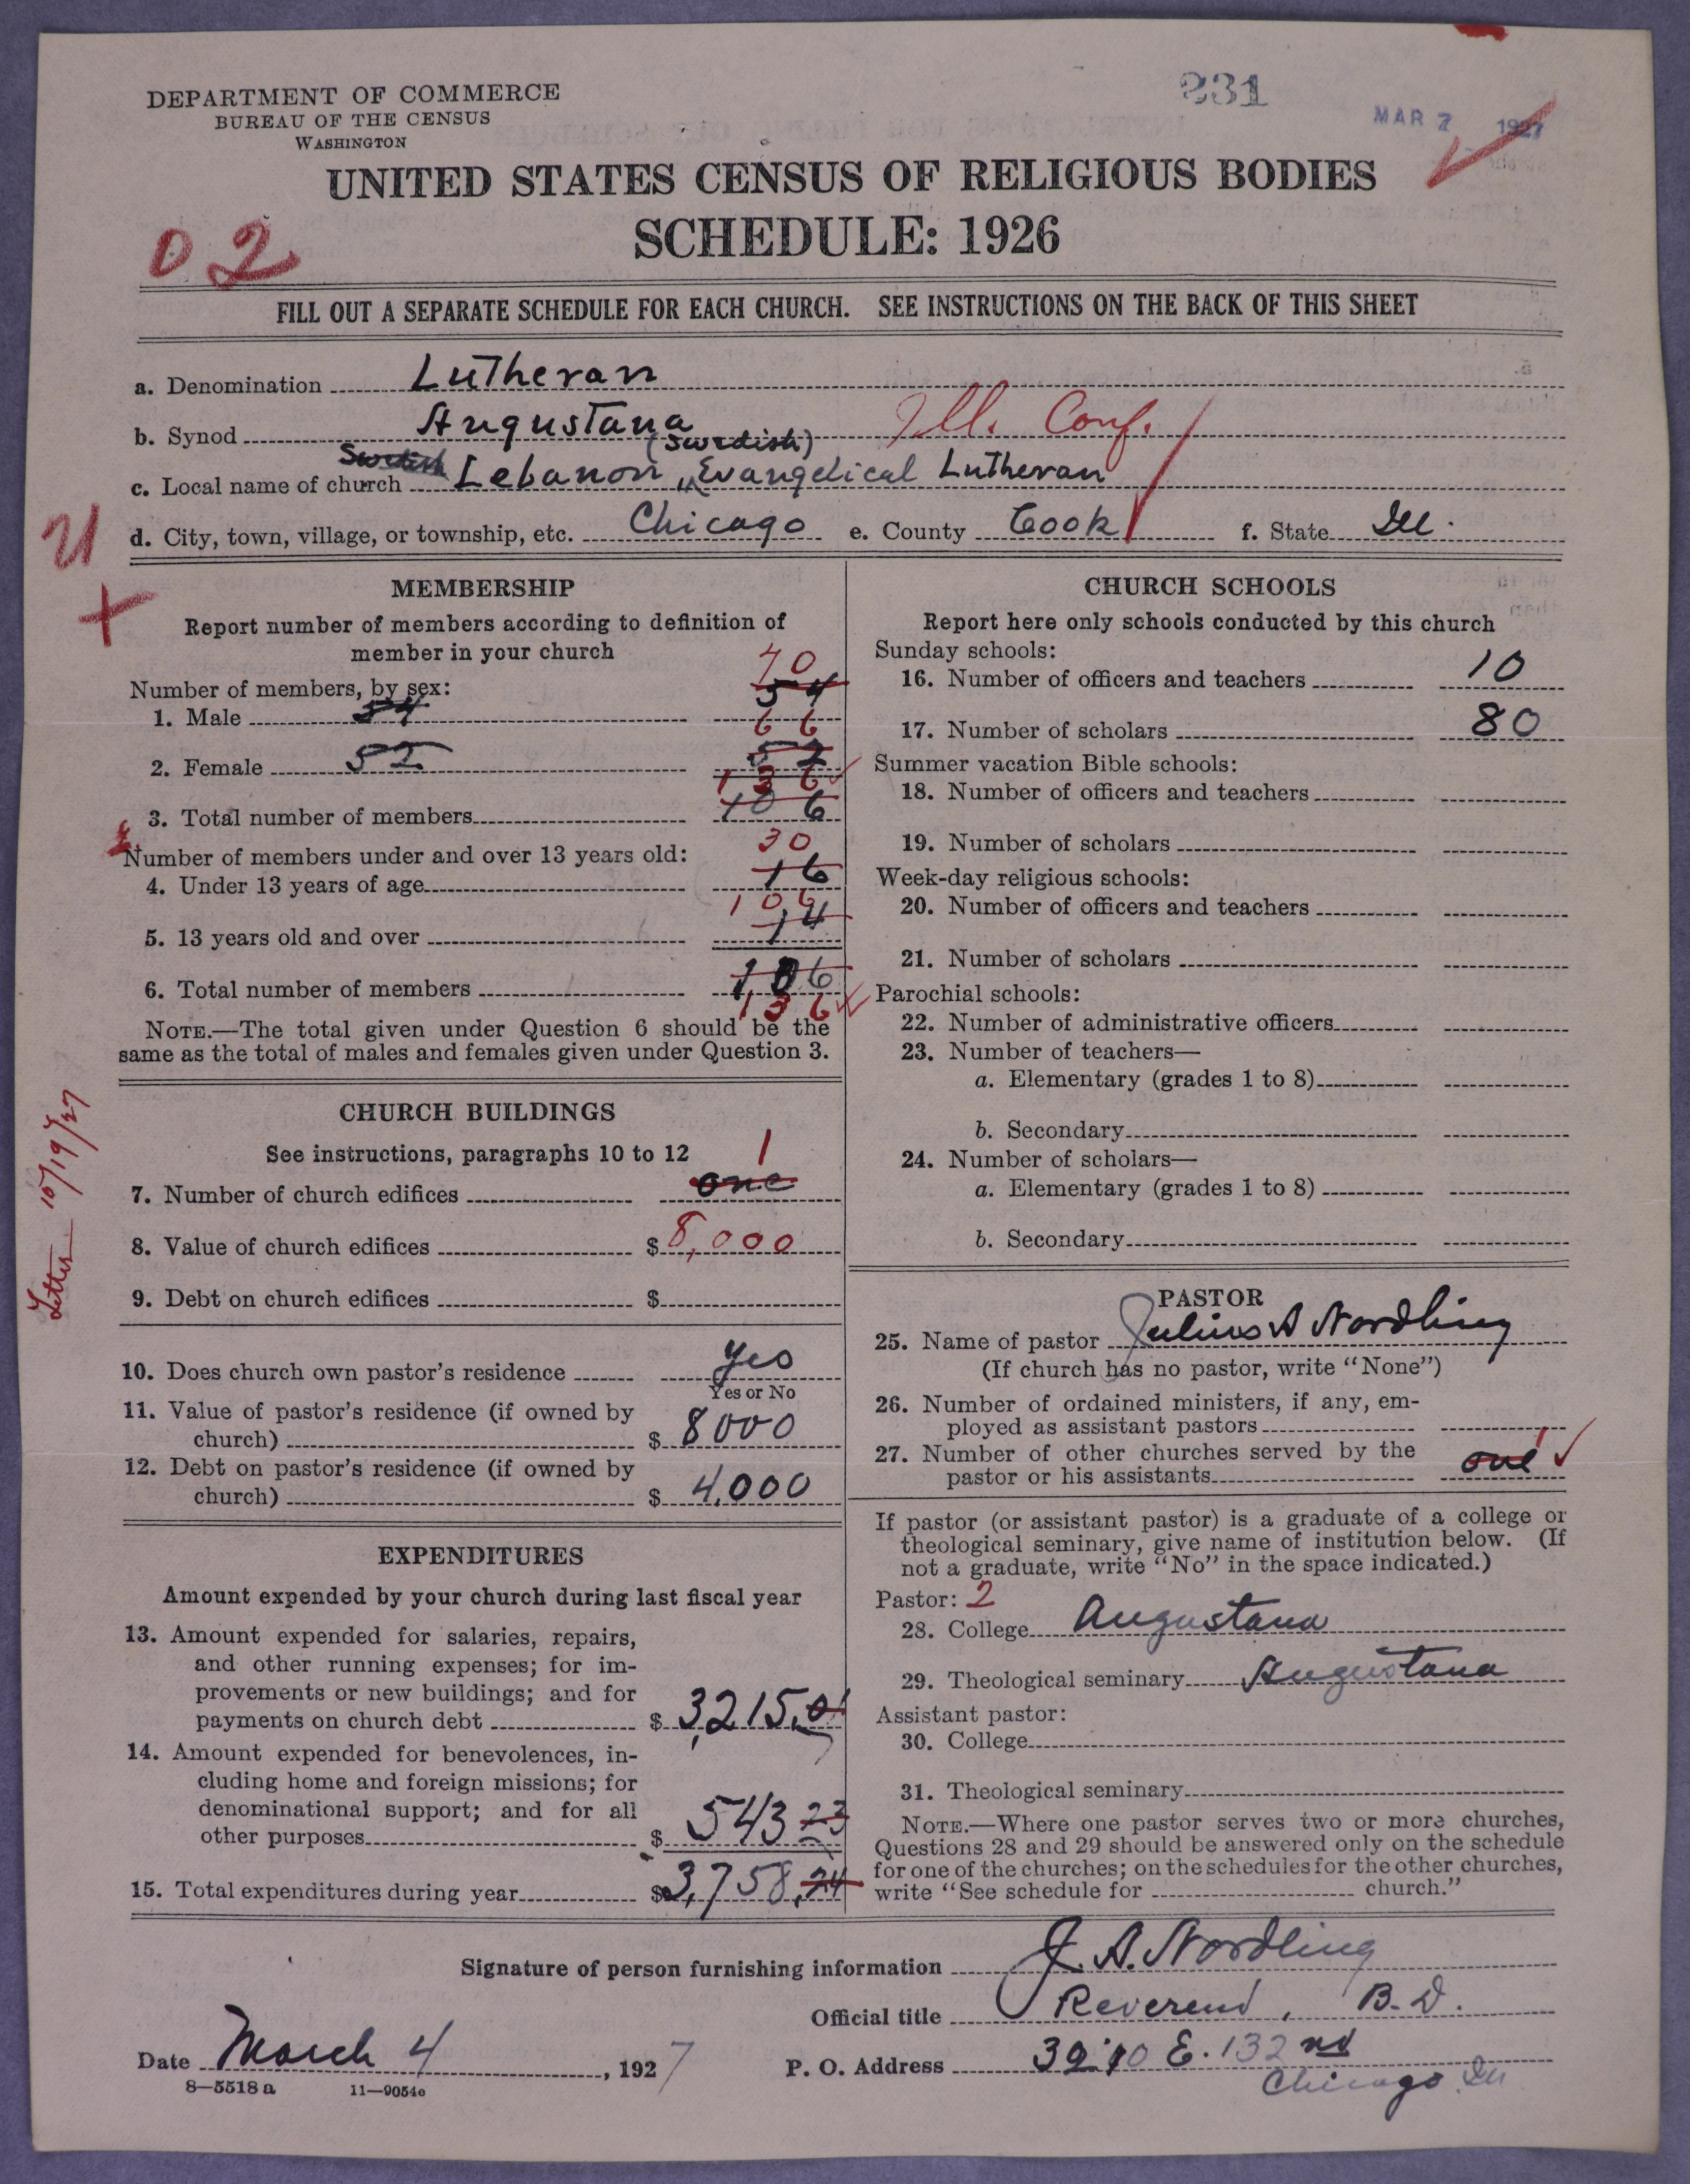 231
MAR 7 1927
DEPARTMENT OF COMMERCE
BUREAU OF THE CENSUS
WASHINGTON
UNITED STATES CENSUS OF RELIGIOUS BODIES
SCHEDULE: 1926
02
FILL OUT A SEPARATE SCHEDULE FOR EACH CHURCH. SEE INSTRUCTIONS ON THE BACK OF THIS SHEET
a. Denomination Lutheran
b. Synod Augustana Ill. Conf.
(Swedish)
c. Local name of church Swedish Lebanon Evangelical Lutheran
d. City, town, village, or township, etc. Chicago e. County Cook f. State Ill.
MEMBERSHIP
Report number of members according to definition of
member in your church
Number of members, by sex:
70
1. Male 54 54
66
2. Female 52 52
136
3. Total number of members 106
Number of members under and over 13 years old:
30
4. Under 13 years of age 16
106
5. 13 years old and over 14
6. Total number of members 106
136
NOTE.—The total given under Question 6 should be the
same as the total of males and females given under Question 3.
Letter 10/19/27
CHURCH BUILDINGS
See instructions, paragraphs 10 to 12
1
7. Number of church edifices one
8. Value of church edifices $ 8,000
9. Debt on church edifices $
10. Does church own pastor's residence yes
Yes or No
11. Value of pastor's residence (if owned by
church) $ 8000
12. Debt on pastor's residence (if owned by
church) $ 4,000
EXPENDITURES
Amount expended by your church during last fiscal year
13. Amount expended for salaries, repairs,
and other running expenses; for im-
provements or new buildings; and for
payments on church debt $ 3,215.01
14. Amount expended for benevolences, in-
cluding home and foreign missions; for
denominational support; and for all
other purposes $ 543 23
15. Total expenditures during year $3,758.24
CHURCH SCHOOLS
Report here only schools conducted by this church
Sunday schools:
16. Number of officers and teachers 10
17. Number of scholars 80
Summer vacation Bible schools:
18. Number of officers and teachers
19. Number of scholars
Week-day religious schools:
20. Number of officers and teachers
21. Number of scholars
Parochial schools:
22. Number of administrative officers
23. Number of teachers—
a. Elementary (grades 1 to 8)
b. Secondary
24. Number of scholars—
a. Elementary (grades 1 to 8)
b. Secondary
PASTOR
25. Name of pastor Julius A Nordling
(If church has no pastor, write "None")
26. Number of ordained ministers, if any, em-
ployed as assistant pastors
27. Number of other churches served by the
pastor or his assistants one 1
If pastor (or assistant pastor) is a graduate of a college or
theological seminary, give name of institution below. (If
not a graduate, write "No" in the space indicated.)
Pastor: 2
28. College Augustana
29. Theological seminary Augustana
Assistant pastor:
30. College
31. Theological seminary
NOTE.—Where one pastor serves two or more churches,
Questions 28 and 29 should be answered only on the schedule
for one of the churches; on the schedules for the other churches,
write "See schedule for church."
Signature of person furnishing information J. A. Nordling
Official title Reverend, B.D.
Date March 4, 1927 P. O. Address E. 132 nd
Chicago Ill
8—5518 a 11—9054e